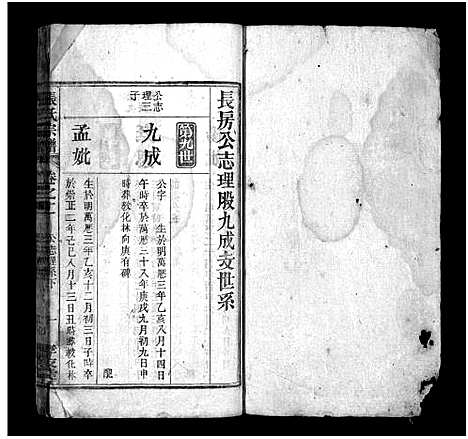 長房公志理股九成支世系
第九世
公志
理三
子
九成
公字　生於明萬曆三年乙亥八月十四日
午時卒於萬曆三十八年庚戌九月初九日申
時葬敦化林向庚有碑
配
孟妣
生於明萬曆三年乙亥十二月初三日子時卒
於崇正二年己巳八月十三日丑時葬敦化林
張氏宗譜
卷之十一
公志理系下
一